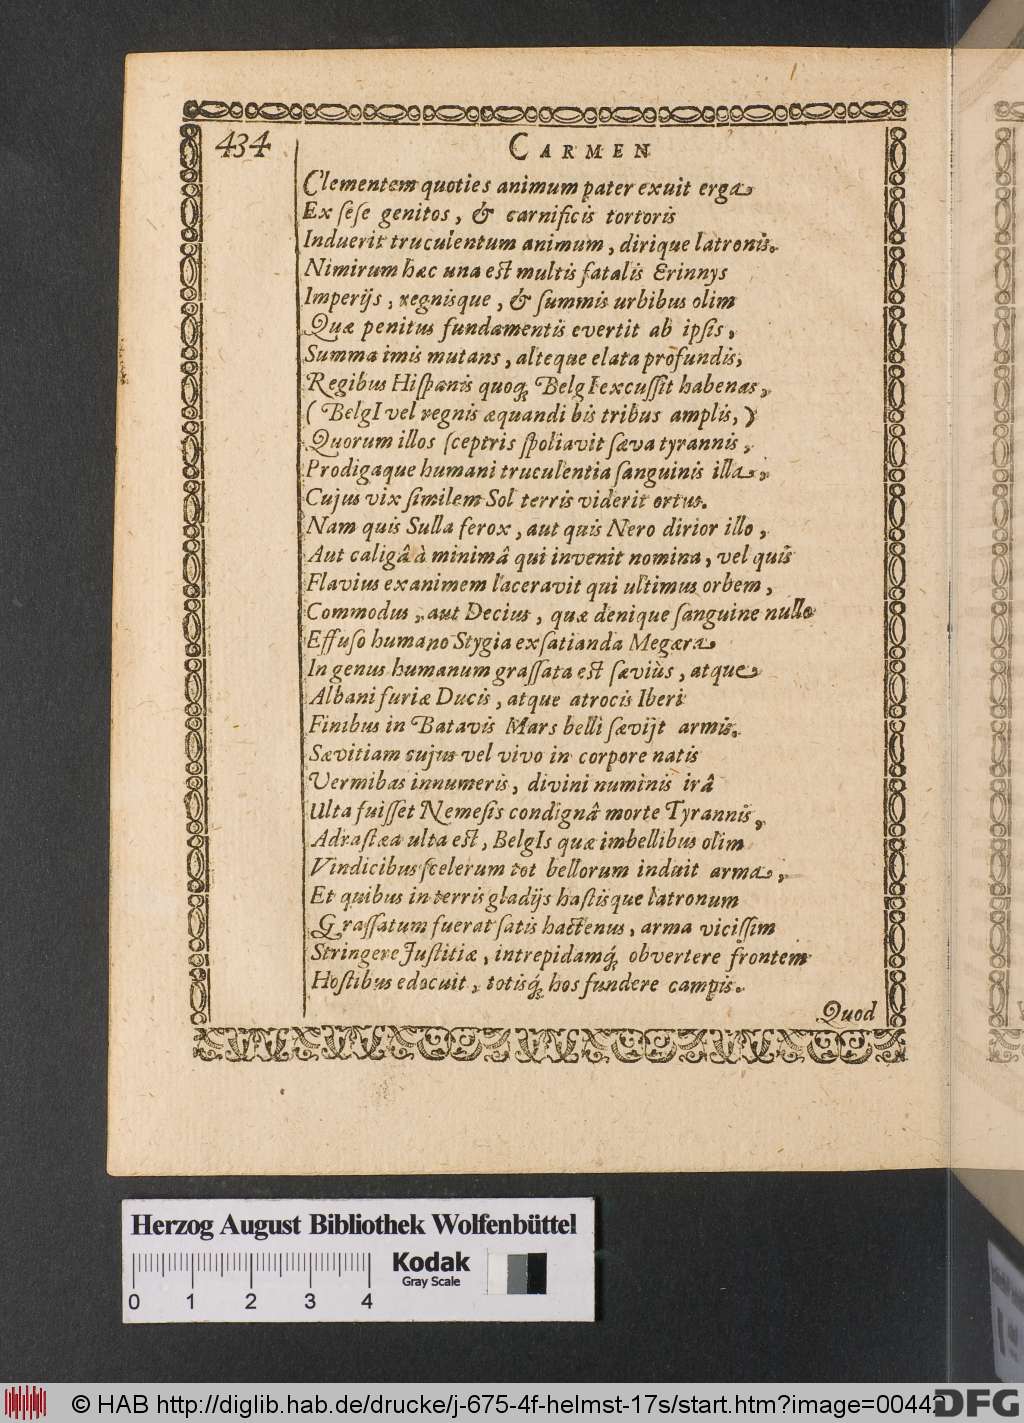 434
CARMEN
Clementem quoties animum pater exuit erga
Ex sese genitos, & carnificis tortoris
Induerit truculentum animum, dirique latronis.
Nimirum hæc una est multis fatalis Erinnys
Imperijs, regnisque, & summis urbibus olim
Quæ penitus fundamentis evertit ab ipsis,
Summa imis mutans, alteque elata profundis,
Regibus Hispanis quoq; BelgI excussit habenas,
(BelgI vel regnis æquandi bis tribus amplis,)
Quorum illos sceptris spoliavit sæva tyrannis,
Prodigaque humani truculentia sanguinis illa,
Cujus vix similem Sol terris viderit ortus.
Nam quis Sulla ferox, aut quis Nero dirior illo,
Aut caligâ à minimâ qui invenit nomina, vel quis
Flavius exanimem laceravit qui ultimus orbem,
Commodus, aut Decius, quæ denique sanguine nullo
Effuso humano Stygia exsatianda Megæra
In genus humanum grassata est sæviùs, atque
Albani furiæ Ducis, atque atrocis Iberi
Finibus in Batavis Mars belli sævijt armis.
Sævitiam cujus vel vivo in corpore natis
Vermibas innumeris, divini numinis irâ
Ulta fuisset Nemesis condignâ morte Tyrannis,
Adrastæa ulta est, BelgIs quæ imbellibus olim
Vindicibus scelerum tot bellorum induit arma,
Et quibus in terris gladijs hastisque latronum
Grassatum fuerat satis hactenus, arma vicissim
Stringere Justitiæ, intrepidamq́; obvertere frontem
Hostibus edocuit, totisq́; hos fundere campis.
Quod
Herzog August Bibliothek Wolfenbüttel
Kodak
Gray Scale
0 1 2 3 4
© HAB http://diglib.hab.de/drucke/j-675-4f-helmst-17s/start.htm?image=00442
DFG